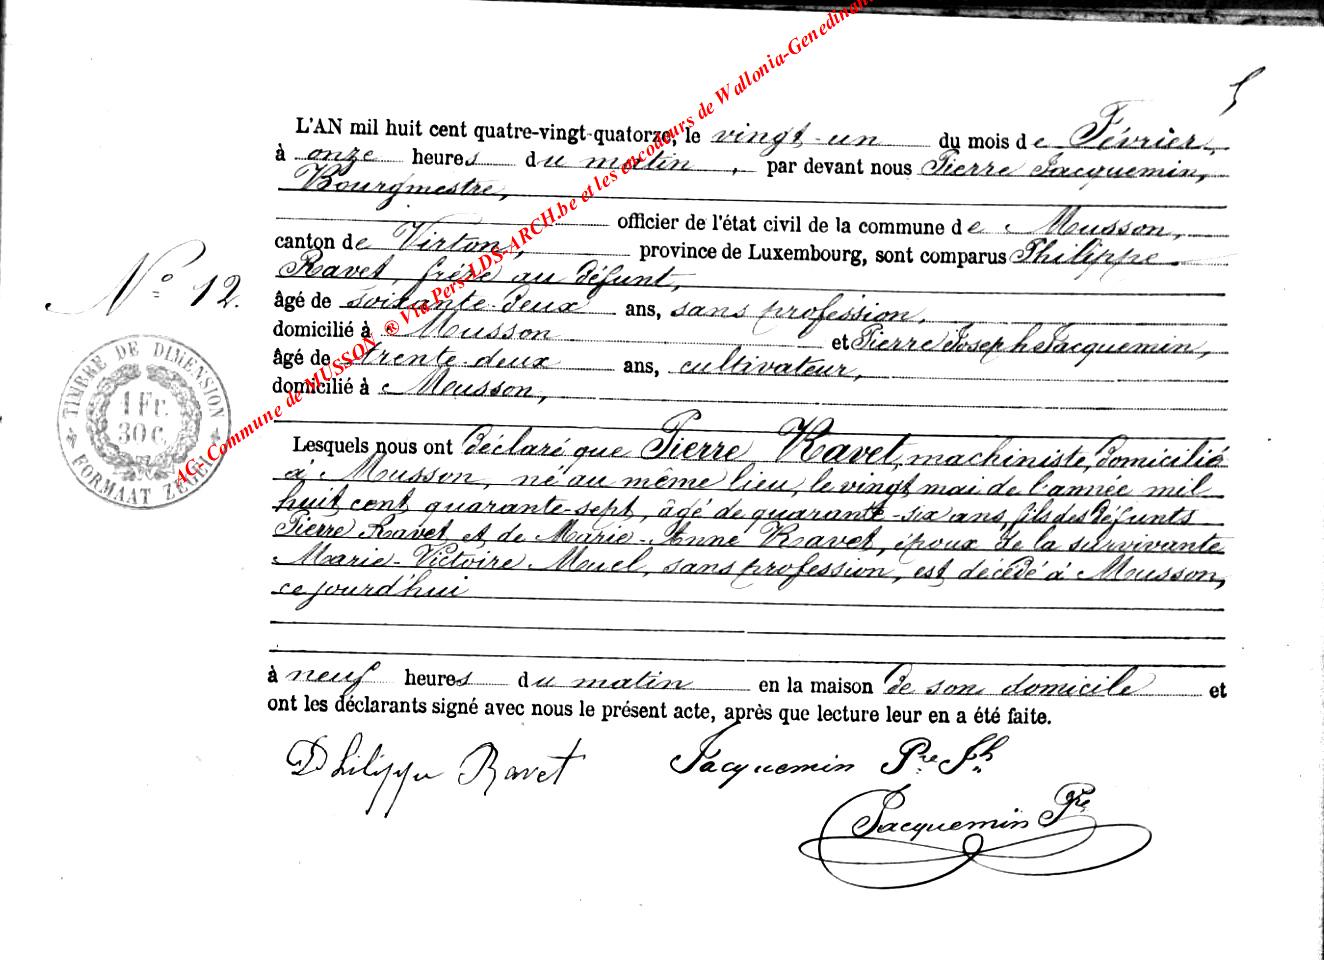 5
L'AN mil huit cent quatre-vingt-quatorze, le vingt-un du mois de Février,
à onze heures du matin, par devant nous Pierre Jacquemin,
Bourgmestre,
officier de l'état civil de la commune de Musson,
canton de Virton, province de Luxembourg, sont comparus Philippe
Ravet, frère au défunt,
N° 12.
âgé de soixante-deux ans, sans profession,
domicilié à Musson et Pierre Joseph Jacquemin,
âgé de trente-deux ans, cultivateur,
domicilié à Musson,
TIMBRE DE DIMENSION
1 Fr.
30 C.
FORMAAT ZEGEL
AG- Commune de MUSSON ® Via Pers-LDS-ARCH.be et les encodeurs de Wallonia-Genedinant
Lesquels nous ont déclaré que Pierre Ravet, machiniste, domicilié
à Musson, né au même lieu, le vingt mai de l'année mil
huit cent quarante-sept, âgé de quarante-six ans, fils des défunts
Pierre Ravet et de Marie-Anne Ravet, époux de la survivante
Marie-Victoire Muel, sans profession, est décédé à Musson,
ce jourd'hui
à neuf heures du matin en la maison de son domicile et
ont les déclarants signé avec nous le présent acte, après que lecture leur en a été faite.
Philippe Ravet Jacquemin Pre Jh
Jacquemin Pre